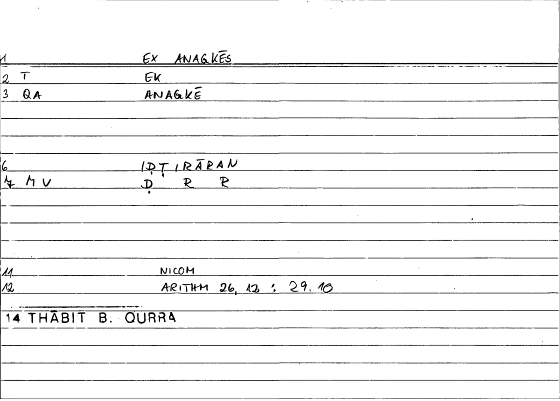 1 EX ANAGKĒS
2 T EK
3 QA ANAGKĒ
6 IḌṬIRĀRAN
7 MV Ḍ R R
11 NICOM
12 ARITHM 26, 12 : 29. 18
14 THĀBIT B. QURRA